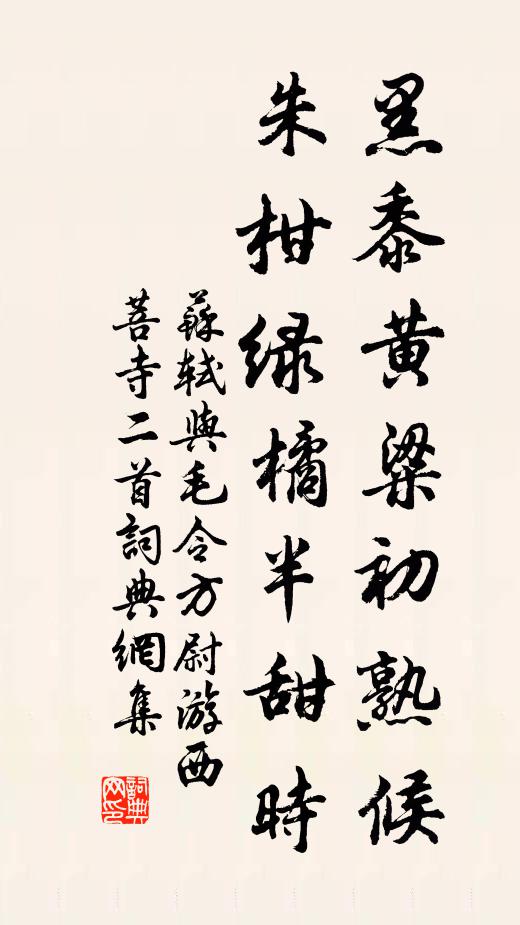 黑黍黄粱初熟候
朱柑绿橘半甜時
蘇軾與毛令方尉游西
菩寺二首詞典網集
詞典網印